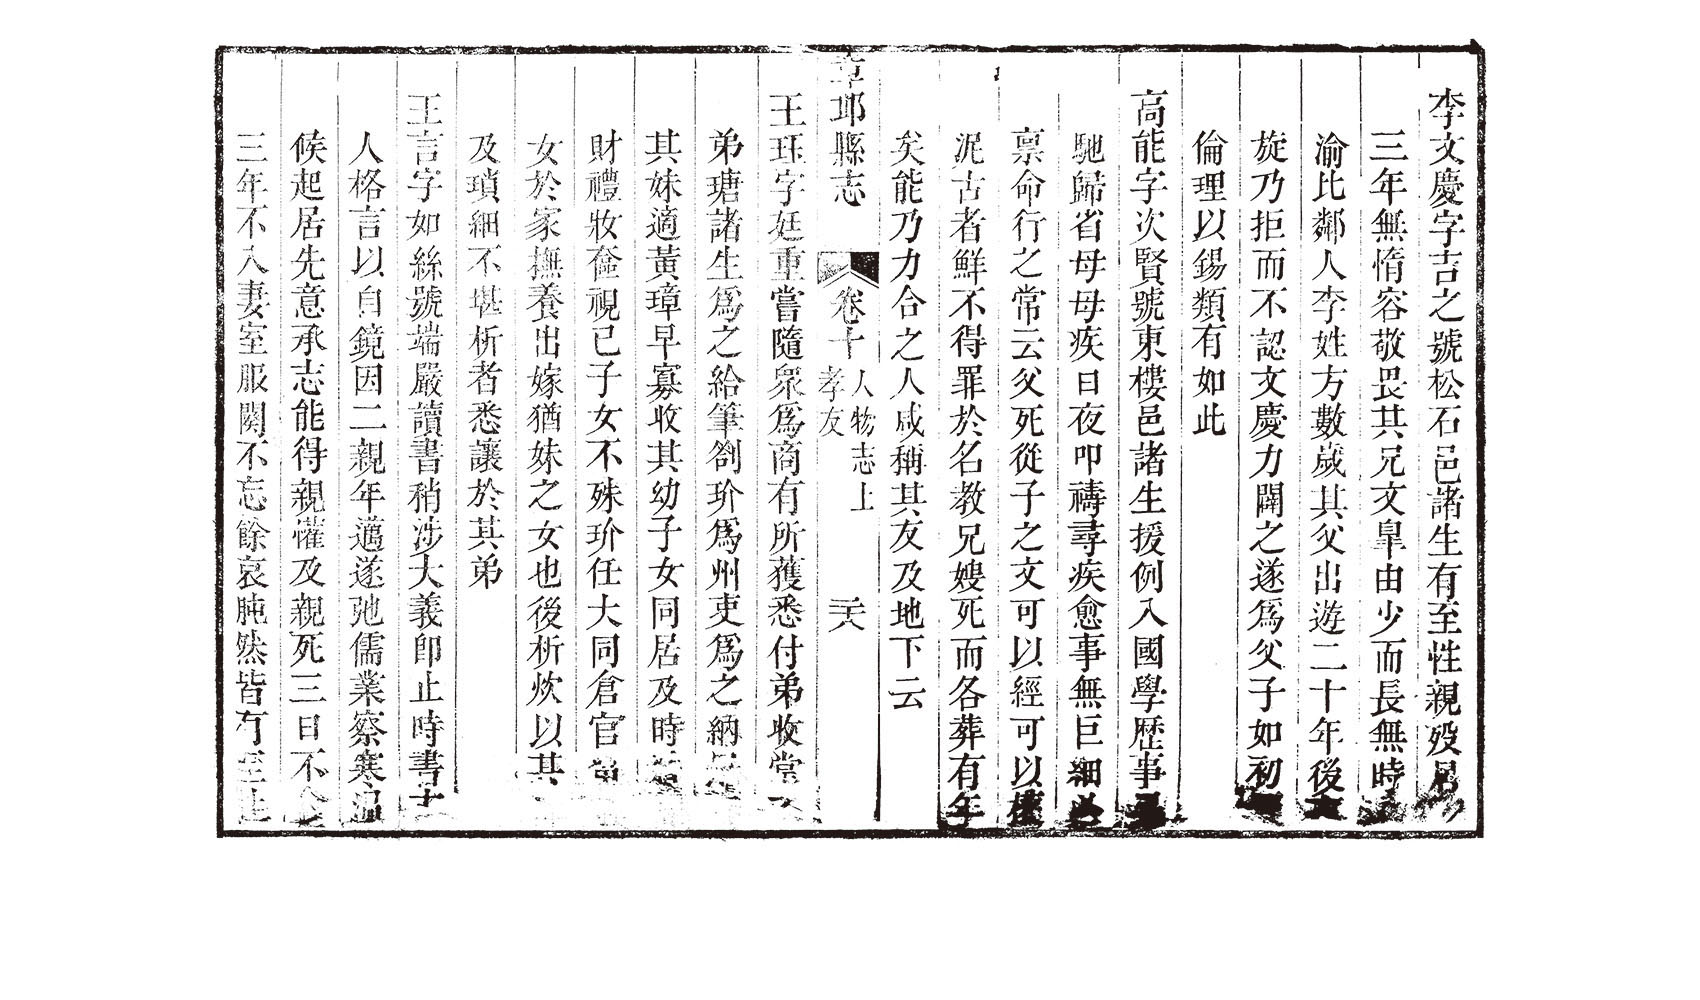 李文慶字吉之號松石邑諸生有至性親歿君
三年無惰容敬畏其兄文臯由少而長無時
渝比鄰人李姓方數歲其父出遊二十年後
旋乃拒而不認文慶力闢之遂爲父子如初
倫理以錫類有如此
高能字次賢號東樓邑諸生援例入國學歷事
馳歸省母母疾日夜叩禱尋疾愈事無巨細
禀命行之常云父死從子之文可以經可以權
泥古者鮮不得罪於名教兄嫂死而各葬有年
矣能乃力合之人咸稱其友及地下云
章邱縣志
卷十
人物志上
孝友
二十六
王珏字廷重嘗隨衆爲商有所獲悉付弟收掌
弟瑭諸生爲之給筆劄玠爲州吏爲之納
其妹適黃璋早寡收其幼子女同居及時
財禮妝奩視已子女不殊玠任大同倉官
女於家撫養出嫁猶妹之女也後析炊以其
及瑣細不堪析者悉讓於其弟
王言字如絲號端嚴讀書稍涉大義即止時書
人格言以自鏡因二親年邁遂弛儒業察寒溫
候起居先意承志能得親懽及親死三日不
三年不入妻室服闋不忘餘哀肫然皆有至性